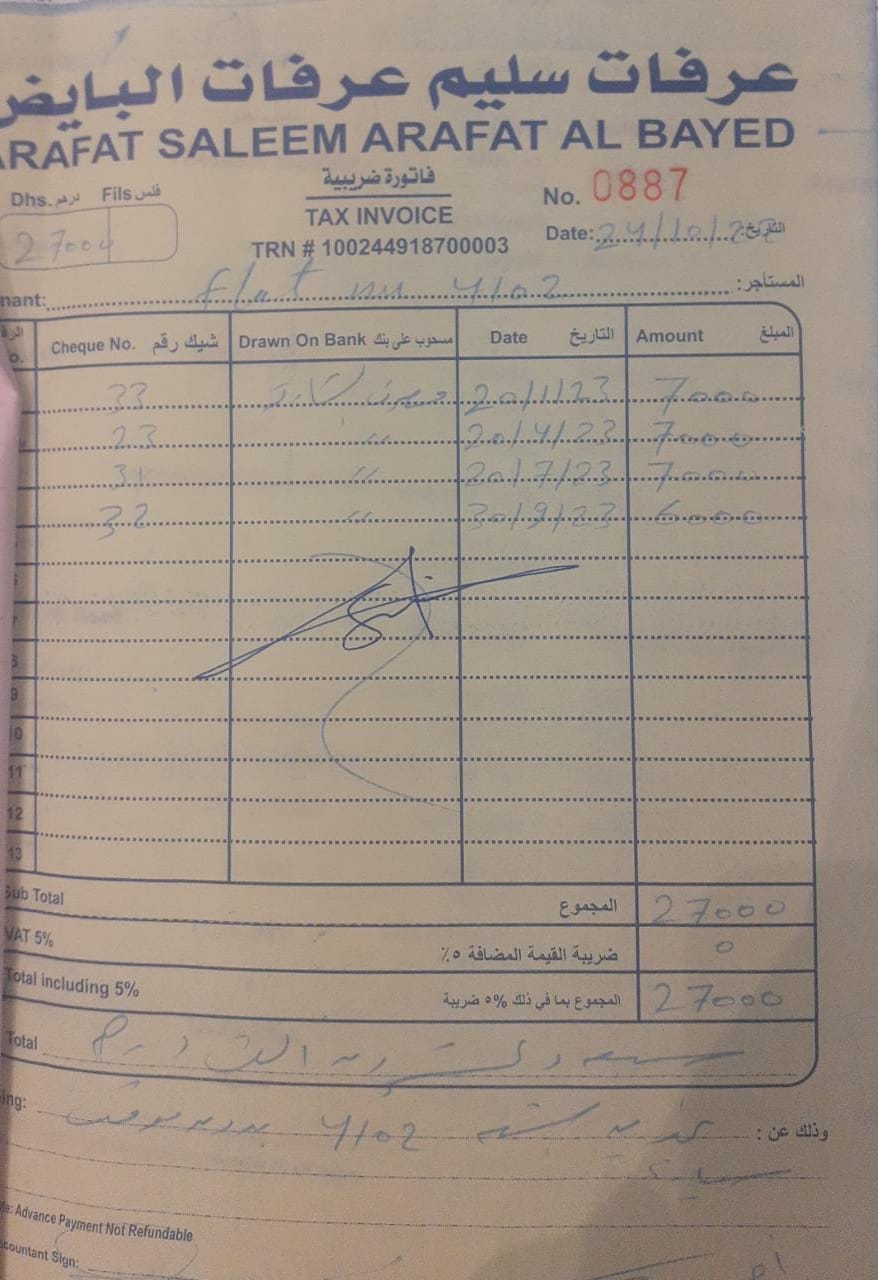 عرفات سليم عرفات البايض
ARAFAT SALEEM ARAFAT AL BAYED
Dhs. درهم Fils فلس
27000
فاتورة ضريبية
TAX INVOICE
TRN # 100244918700003
No. 0887
Date: 24/10/22 التاريخ:
nant: flat 4102 المستأجر:
o. Cheque No. شيك رقم Drawn On Bank مسحوب على بنك Date التاريخ Amount المبلغ
33 20/1/23 7000
23 " 20/4/23 7000
31 " 20/7/23 7000
32 " 30/9/23 6000
8
9
10
11
12
13
Sub Total المجموع 27000
VAT 5% ضريبة القيمة المضافة ٥٪ 0
Total including 5% المجموع بما في ذلك ٥% ضريبة 27000
Total سبعة وعشرون الف درهم
ing: 4102 وذلك عن:
te: Advance Payment Not Refundable
ccountant Sign: